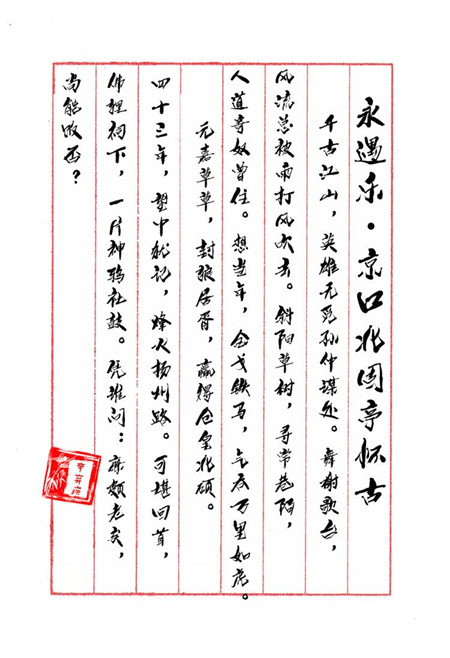 永遇乐·京口北固亭怀古
千古江山，英雄无觅孙仲谋处。舞榭歌台，
风流总被雨打风吹去。斜阳草树，寻常巷陌，
人道寄奴曾住。想当年，金戈铁马，气吞万里如虎。
元嘉草草，封狼居胥，赢得仓皇北顾。
四十三年，望中犹记，烽火扬州路。可堪回首，
佛狸祠下，一片神鸦社鼓。凭谁问：廉颇老矣，
尚能饭否？